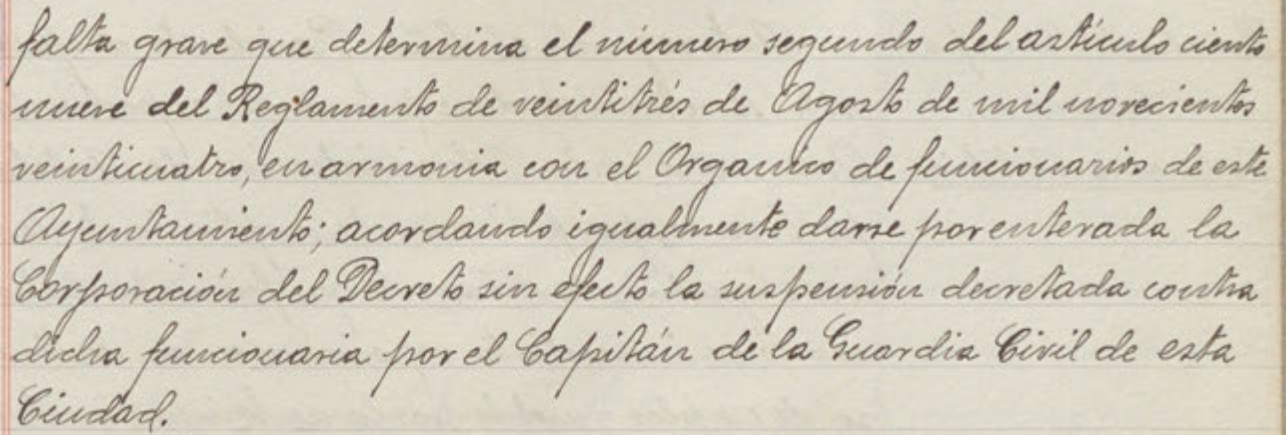 falta grave que determina el número segundo del artículo ciento
nueve del Reglamento de veintitrés de Agosto de mil novecientos
veinticuatro, en armonia con el Organico de funcionarios de este
Ayuntamiento; acordando igualmente darse por enterada la
Corporación del Decreto sin efecto la suspensión decretada contra
dicha funcionaria por el Capitán de la Guardia Civil de esta
Ciudad.